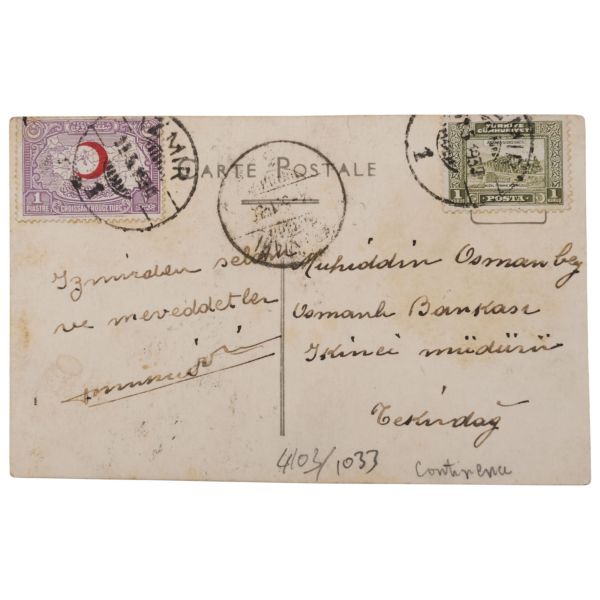 İZMİR
1
1
PIASTRE
CROISSANT ROUGE TURC
1
CARTE POSTALE
TÜRKİYE
CÜMHURİYETİ
1
POSTA
1
İzmirden selâm
ve meveddetler
Muhiddin Osman bey
Osmanlı Bankası
İkinci müdürü
Tekirdağ
4103/1033